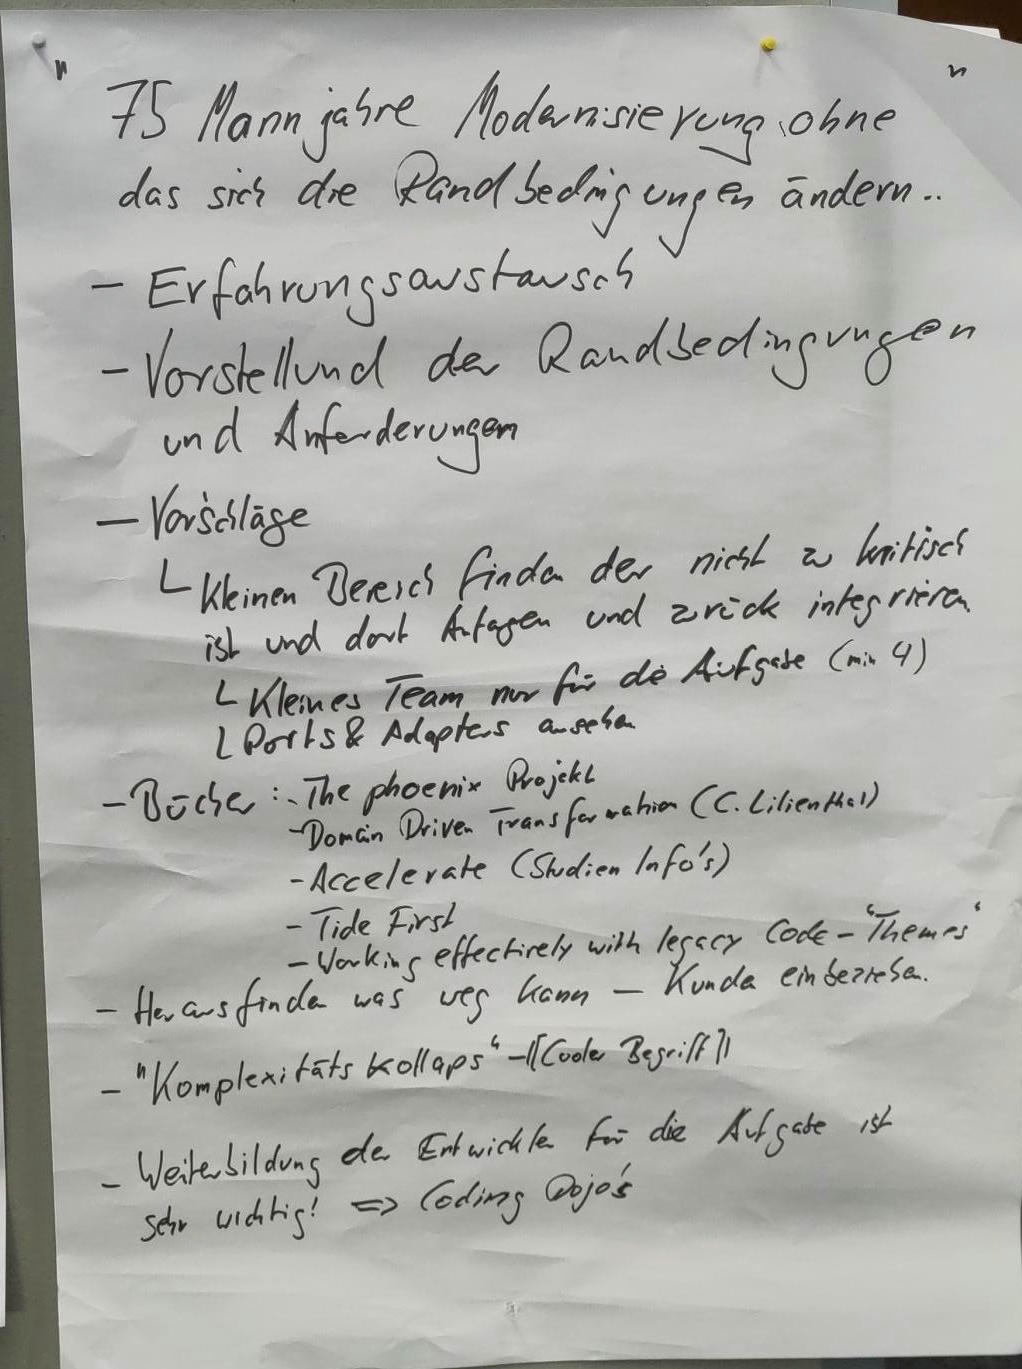 "75 Mannjahre Modernisierung, ohne "
das sich die Randbedingungen ändern..
- Erfahrungsaustausch
- Vorstellund der Randbedingungen
und Anforderungen
- Vorschläge
└ Kleinen Bereich finden der nicht zu kritisch
ist und dort Anfagen und zurück integrieren
└ Kleines Team nur für die Aufgabe (min 4)
└ Ports & Adapters ansehen
- Bücher: - The phoenix Projekt
- Domain Driven Transformation (C. Lilienthal)
- Accelerate (Studien Info's)
- Tide First
- Working effectively with legacy Code - "Themes"
- Herausfinden was weg kann - Kunde einbeziehen.
- "Komplexitäts kollaps" - [[Cooler Begriff]]
- Weiterbildung der Entwickler für die Aufgabe ist
sehr wichtig! => Coding Dojo's